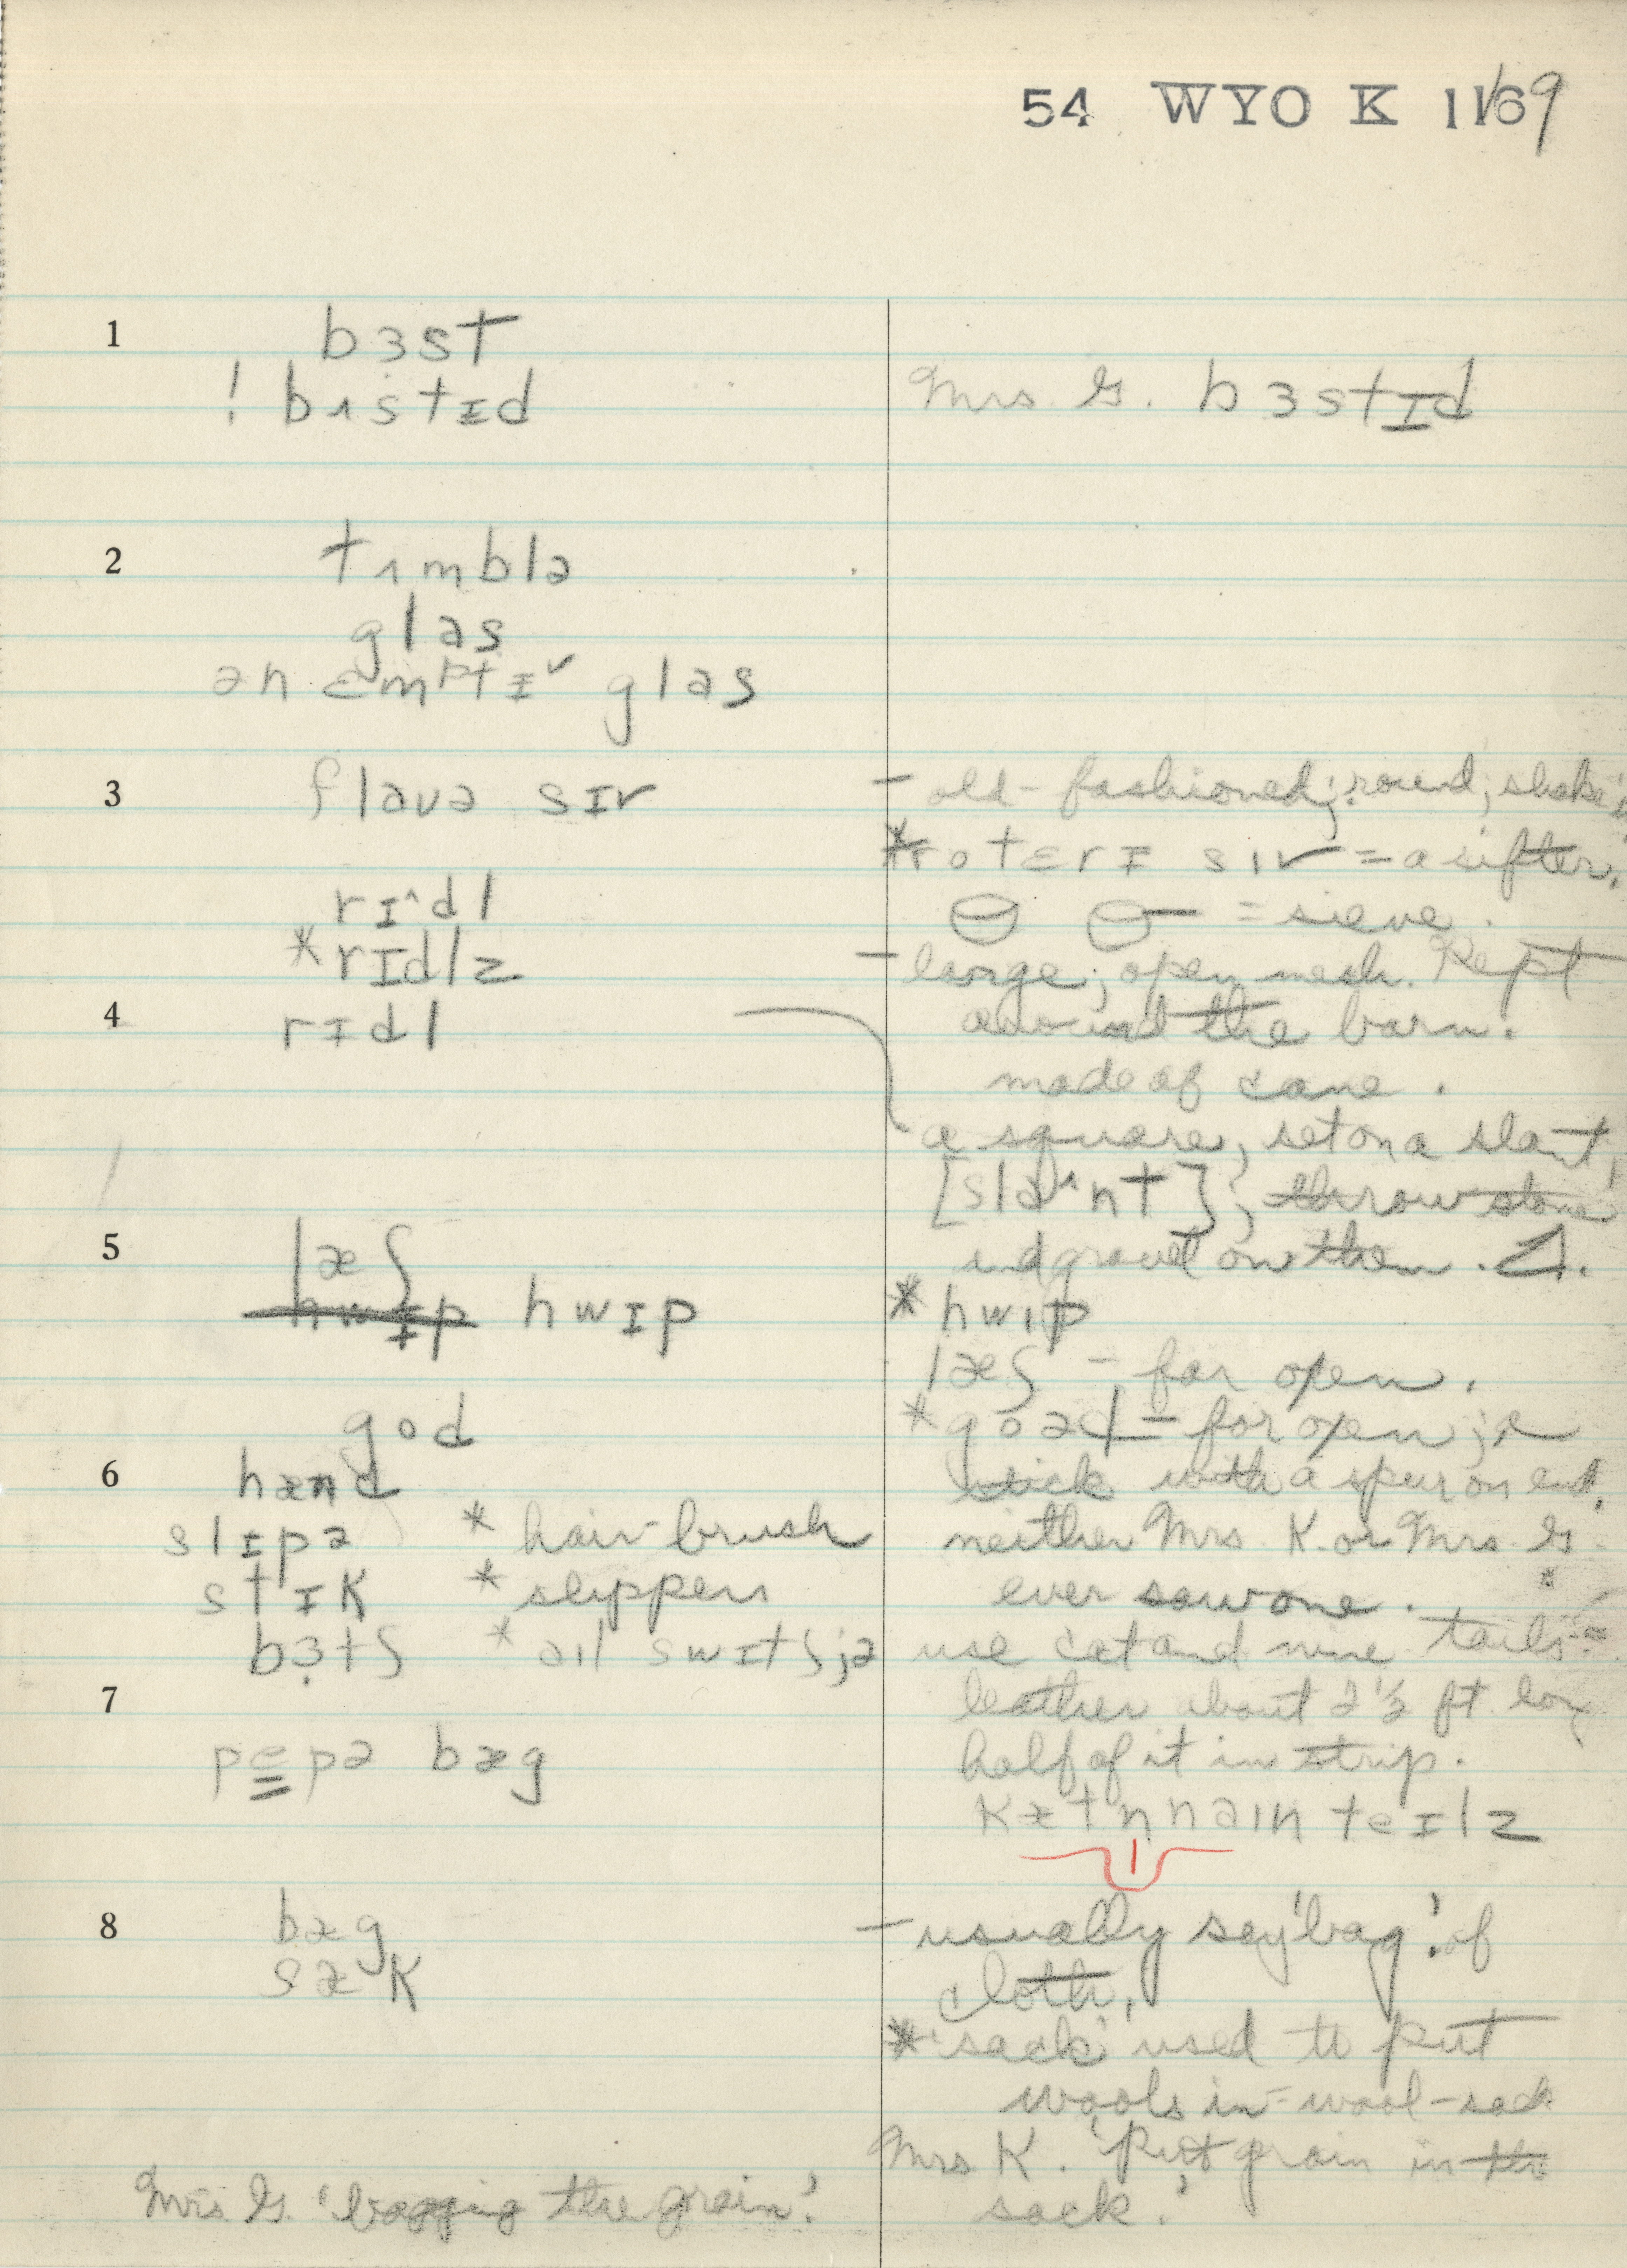 54 WYO K 11/69
1
bɜst
! bɪstɪd
Mrs. G. bɜstɪd
2
tɪmblə
glas
ən ɛmptɪ˅ glas
3
flavə sɪv
- old-fashioned; round; shake
*rotɛrɪ sɪv = a sifter.
= sieve.
rɪ^dl
*rɪdlz
- large; open mesh. Kept
4
rɪdl
around the barn.
made of cane.
a square, set on a slant,
[sla^nt]; throw stone
and gravel on them.
5
læʃ
hwɪp hwɪp
*hwɪp
læʃ - for open.
god
*goad - for open; a
6
hænd
stick with a spur on end.
slɪpə *hair-brush
neither Mrs. K. or Mrs. G.
stɪk *slippers
ever saw one.
bɜtʃ *əɪl swɪtʃ;ə
use cat and nine tails =
7
leather about 2 1/2 ft. long
pepə bæg
half of it in strip.
kætn naɪn teɪlz
8
bæg
- usually say 'bag' of
sæk
cloth.
*'sack' used to put
wools in = wool-sack
Mrs K. 'Put grain in the
sack.'
Mrs. G. 'bagging the grain.'